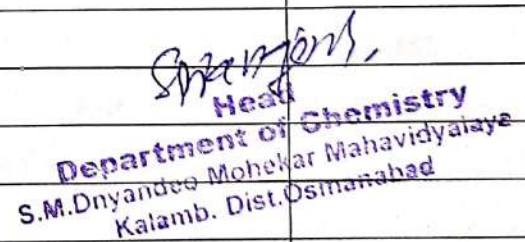 Head
Department of Chemistry
S.M.Dnyandeo Mohekar Mahavidyalaya
Kalamb. Dist.Osmanabad